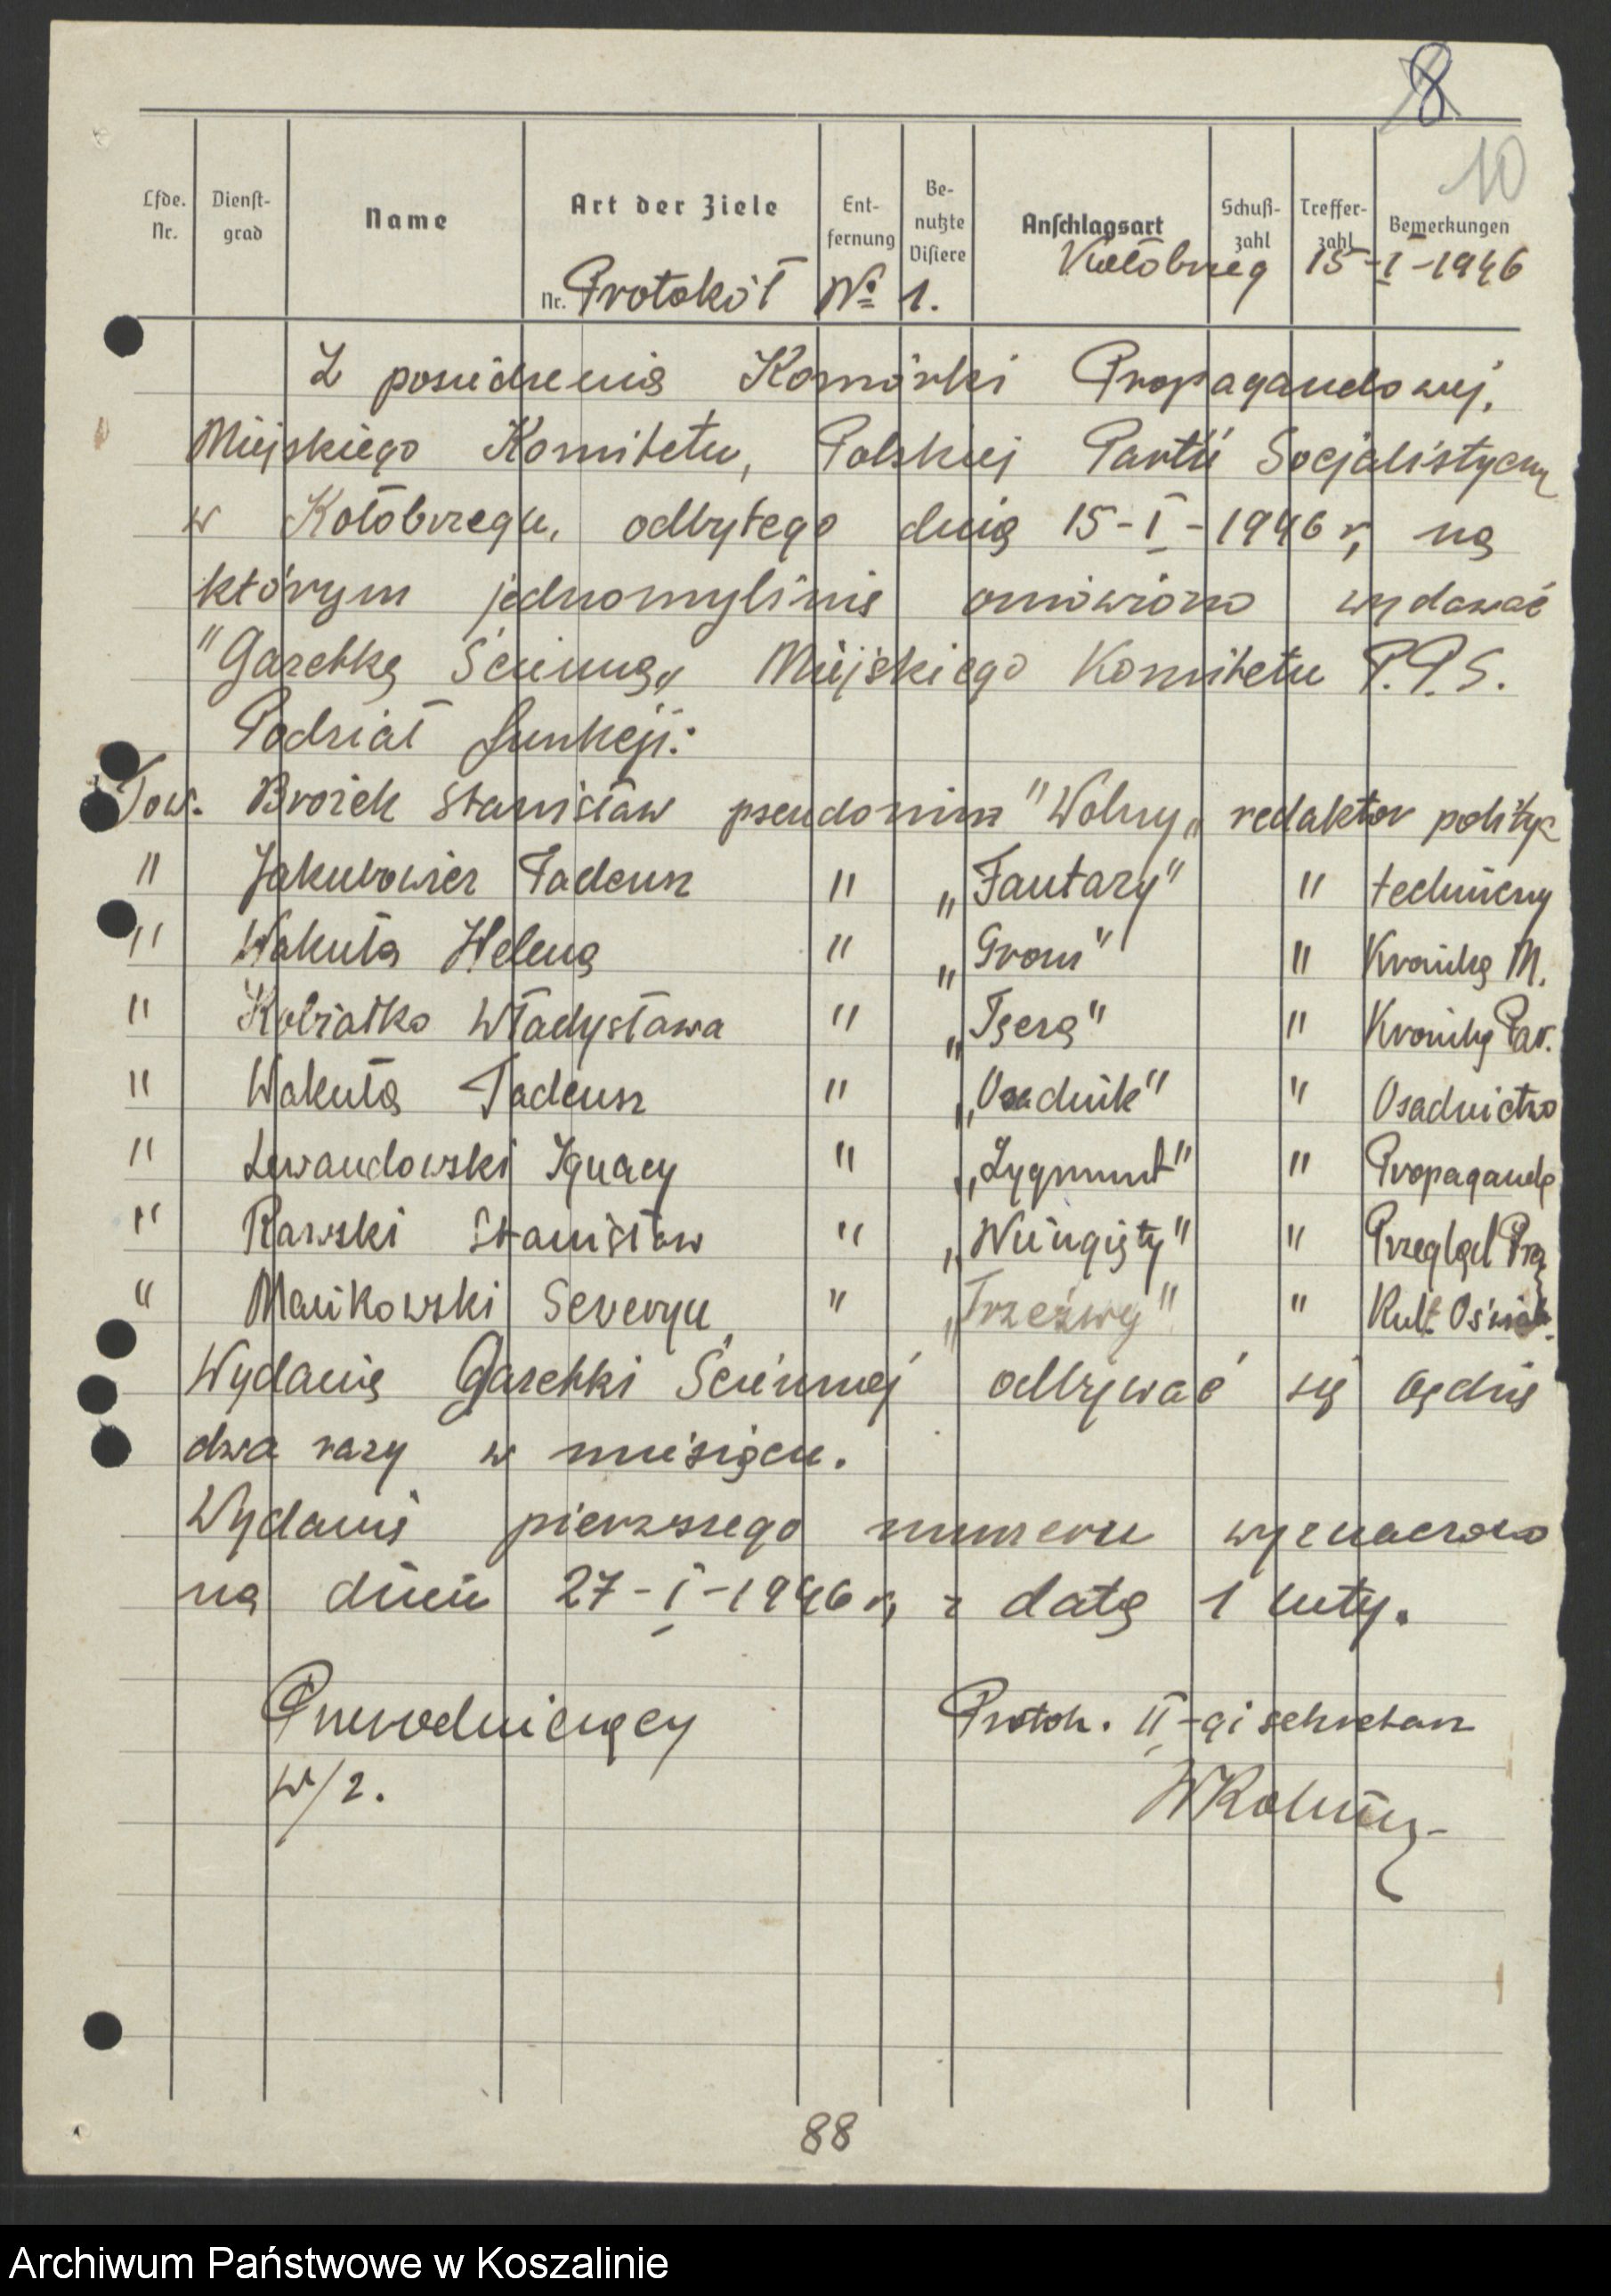 8
10
Lfde. Nr.
Dienst-grad
Name
Art der Ziele
Ent-fernung
Be-nutzte Visiere
Anschlagsart
Schuß-zahl
Treffer-zahl
Bemerkungen
Nr. Protokół № 1. Kołobrzeg 15-I-1946
Z posiedzenia Komórki Propagandowej,
Miejskiego Komitetu, Polskiej Partii Socjalistyczn
w Kołobrzegu, odbytego dnia 15-I-1946 r, na
którym jednomyślnie omówiono wydawać
"Gazetkę Ścienną„ Miejskiego Komitetu P.P.S.
Podział funkcji:
Tow. Brożek Stanisław pseudonim "Wolny„ redaktor polityc
" Jakubowicz Tadeusz " „Fantazy" " techniczny
" Wakuła Helena " „Grom" " Kronika M.
" Kobiałko Władysława " „Tsera" " Kronika Par.
" Wakuła Tadeusz " „Osadnik" " Osadnictwo
" Lewandowski Ignacy " „Zygmunt" " Propaganda
" Rawski Stanisław " „Nieugięty" " Przegląd Pra
" Mańkowski Seweryn " „Trzeźwy" " Kult. Oświat.
Wydanie Gazetki Ściennej odbywać się będzie
dwa razy w miesiącu.
Wydanie pierwszego numeru wyznaczono
na dzień 27-I-1946 r, z datą 1 luty.
Przewodniczący Protok. II-gi sekretarz
w/z.
88
Archiwum Państwowe w Koszalinie